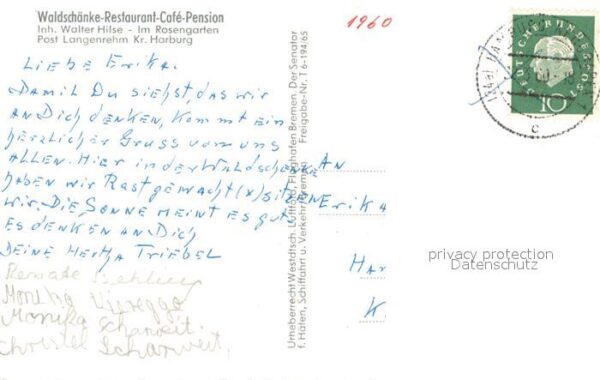 Waldschänke-Restaurant-Café-Pension
Inh. Walter Hilse - Im Rosengarten
Post Langenrehm Kr. Harburg
1960
Liebe Erika.
Damit Du siehst, das wir
an Dich denken, kommt ein
herzlicher Gruss vom uns
allen. Hier in der Waldschenke
haben wir Rast gemacht (x) sitzen
wir. Die Sonne meint es gut
es denken an Dich
Deine Hertha Triebel
Renate
Monika Vieregge
Monika Scharweit.
Christel Scharweit.
Urheberrecht Westdtsch. Luftfoto, Flughafen Bremen. Der Senator
f. Häfen, Schiffahrt u. Verkehr, Bremen Freigabe-Nr. T 6-194/65
An
Erika
Har
K
DEUTSCHE BUNDESPOST
10
HAMBURG
c
privacy protection
Datenschutz